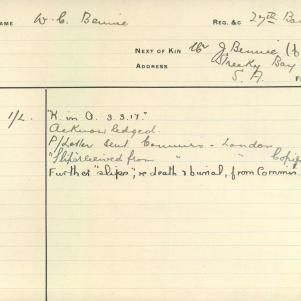 NAME W. C. Bennie REG. &C 27th Ba
NEXT OF KIN Mr J. Bennie (f
ADDRESS Streaky Bay
S. A.
1/L. "K. in A. 3.3.17."
Acknowledged.
P/Letter sent Commrs. London
"Slips" received from " " Copies
Further "slips"; re death & burial, from Commis